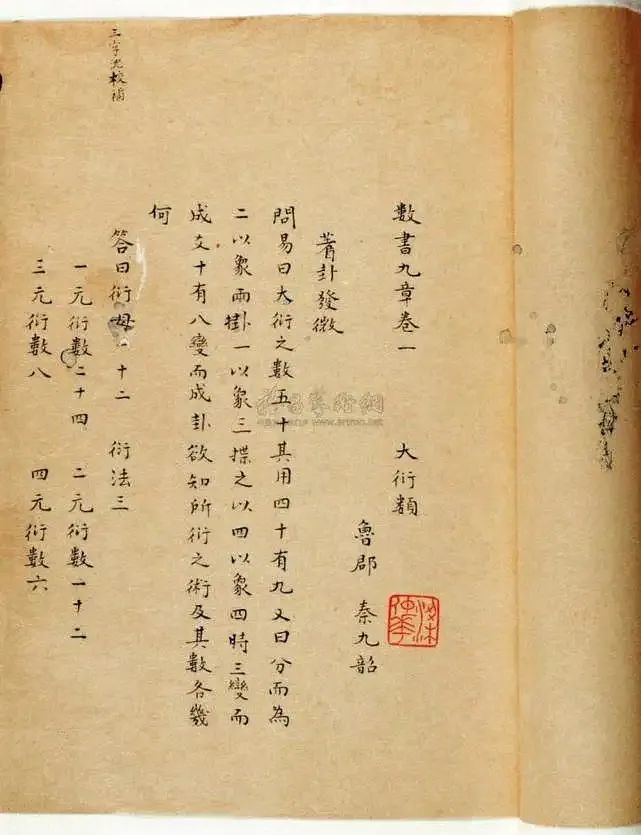 數書九章卷一 大衍類
魯郡 秦九韶
蓍卦發微
問易曰大衍之數五十其用四十有九又曰分而為
二以象兩掛一以象三揲之以四以象四時三變而
成爻十有八變而成卦欲知所衍之術及其數各幾
何
答曰衍母一十二 衍法三
一元衍數二十四 二元衍數一十二
三元衍數八 四元衍數六